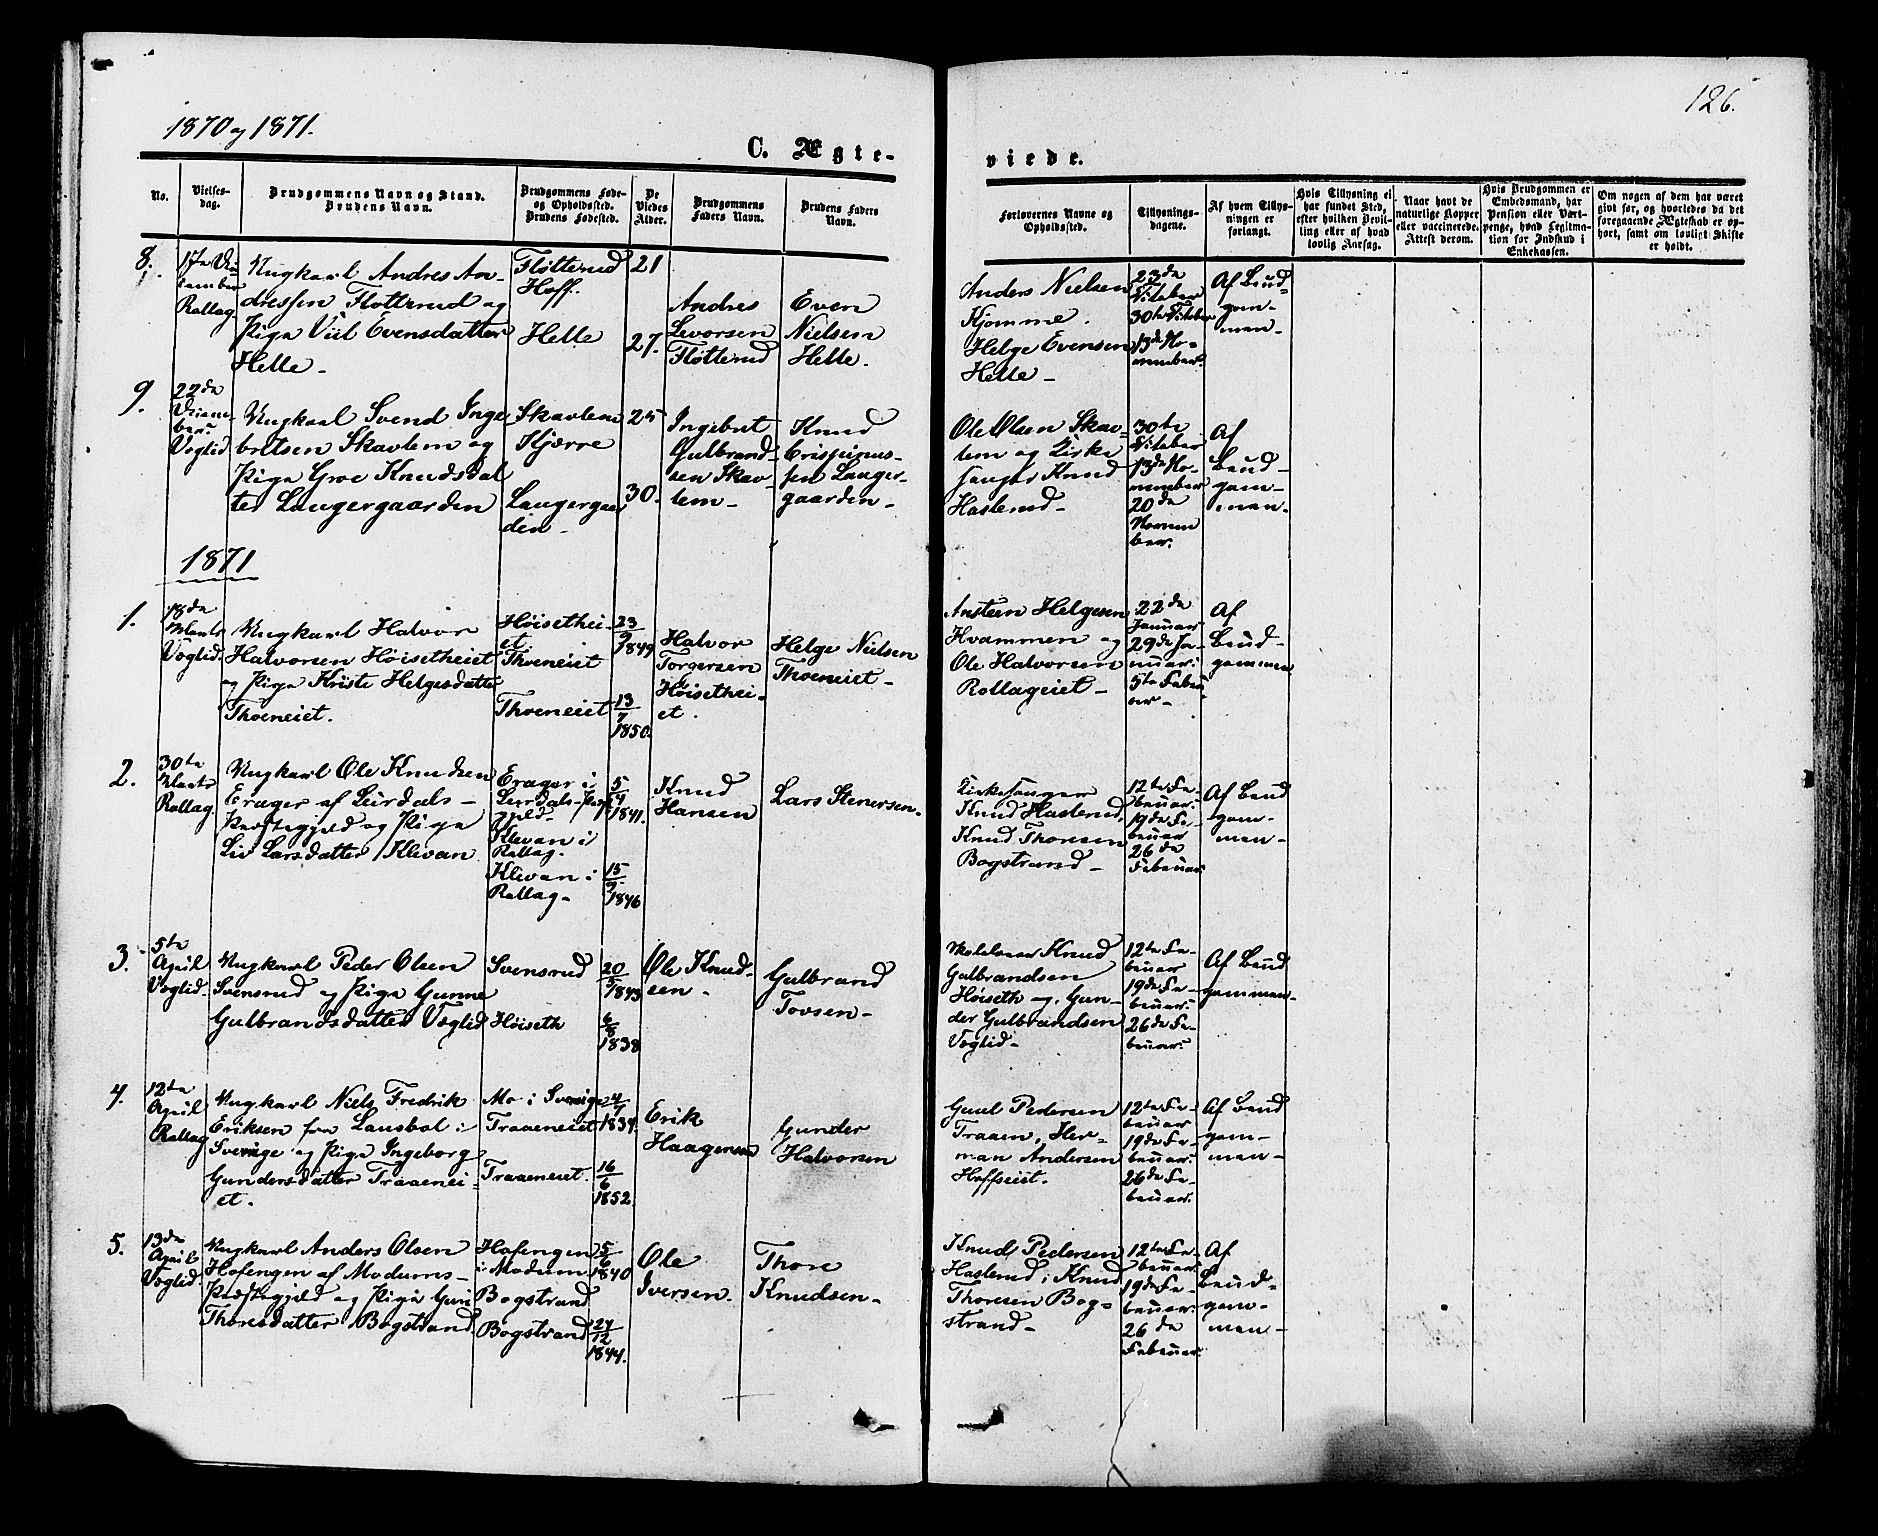 1870 og 1871.
126.
C. Ægte-
viede.
No.
Vielses-
dag.
Brudgommens Navn og Stand.
Brudens Navn.
Brudgommens Føde-
og Opholdssted.
Brudens Fødested.
De
Viedes
Alder.
Brudgommens
Faders Navn.
Brudens Faders
Navn.
Forlovernes Navne og
Opholdssted.
Tillysnings-
dagene.
Af hvem Tillys-
ningen er
forlangt.
Hvis Tillysning ei
har fundet Sted,
efter hvilken Bevil-
ling eller af hvad
lovlig Aarsag.
Naar havt de
naturlige Kopper
eller vaccinerede.
Attest derom.
Hvis Brudgommen er
Embedsmand, har
Pension eller Vart-
penge, hvad Legitma-
tion for Indskud i
Enkekassen.
Om nogen af dem har været
givt før, og hvorledes da det
foregaaende Ægteskab er op-
hørt, samt om lovligt Skifte
er holdt.
8.
17de
Rollag
Ungkarl Andres An-
dressen Fløtterud og
Pige Viel Evensdatter
Helle -
Fløtterud
Hoff.
Helle
21
27.
Andres
Levorsen
Fløtterud
Even
Nielsen
Helle.
Anders Nielsen
Kjomme.
Helge Evensen
Helle -
23de
Oktober
30te Oktober
13de No-
vember.
Af Brud-
gom-
men -
9.
22de
Veglid
Ungkarl Svend Inge-
britsen Skavlem og
Pige Groe Knudsdat
ter Laugergaarden
Skavlem
Kjerre
Laugergaar
den -
25
30.
Ingebret
Gulbrand-
sen Skav-
lem -
Knud
Crispinus-
sen Lauger-
gaarden -
Ole Olsen Skav-
lem og Kirke
sanger Knud
Haslerud -
30te
Oktober
13de No-
vember
20de
Novem
ber.
Af
Brud-
gom-
men -
1871
1.
18de
Marts
Veglid.
Ungkarl Halvor
Halvorsen Høisetheiet
og Pige Kriste Helgesdatter
Thoeneiet.
Høisethei-
et
Thoeneiet
Thoeneiet
23/9 1849
13/7 1850.
Halvor
Torgersen
Høisethei-
et.
Helge Nielsen
Thoeneiet -
Ansteen Helgesen
Kvammen og
Ole Halvorsen
Rollageiet -
22de
Januar
29de Ja-
nuar.
5te Febru
ar -
Af
Brud-
gommen
2.
30te
Marts
Rollag
Ungkarl Ole Knudsen
Erager af Leirdals -
Præstegjeld og Pige
Liv Larsdatter Klevan
Erager i
Leirdals-Præste
gjeld -
Klevan i
Rollag.
Klevan i
Rollag -
5/4 1841.
15/9 1846
Knud
Hansen
Lars Stenersen.
Kirkesanger
Knud Haslerud,
Knud Thoresen
Bogstrand -
12te Fe-
bruar.
19de Fe-
bruar
26de
Februar
Af Brud
gom-
men -
3.
5te
April
Veglid -
Ungkarl Peder Olsen
Svensrud og Pige Gunne
Gulbrandsdatter Veglid
Svensrud
Høiseth
20/5 1843
6/8 1838
Ole Knud-
sen -
Gulbrand
Tovsen -
Skolelærer Knud
Gulbrandsen
Høiseth og Gun-
der Gulbrandsen
Veglid -
12te Fe-
bruar
19de Fe-
bruar.
26de Fe-
bruar.
Af Brud
gommen -
4.
12te
April
Rollag
Ungkarl Niels Fredrik
Eriksen fra Lansbol i
Sverrige og Pige Ingeborg
Gundersdatter Traaenei-
et.
Mo i Sverrige
Traaeneiet
Traaeneiet.
4/7 1839.
16/6 1852.
Erik
Haagensen
Gunder
Halvorsen
Gunl Pedersen
Traaen, Her-
man Andersen
Hoffseiet.
12te Fe-
bruar
19de Fe-
bruar.
26de Fe-
bruar.
Af Brud
gom-
men -
5.
13de
April
Veglid.
Ungkarl Anders Olsen
Hofengen af Modums -
Præstegjeld og Pige Guri
Thoresdatter Bogstrand.
Hofengen
i Modum
Bogstrand
Bogstrand
5/6 1840
27/12 1844.
Ole
Iversen.
Thore
Knudsen -
Knud Pedersen
Haslerud, Knud
Thoresen Bog-
strand -
12te Fe-
bruar.
19de Fe-
bruar.
26de
Februar.
Af
Brud-
gom-
men -